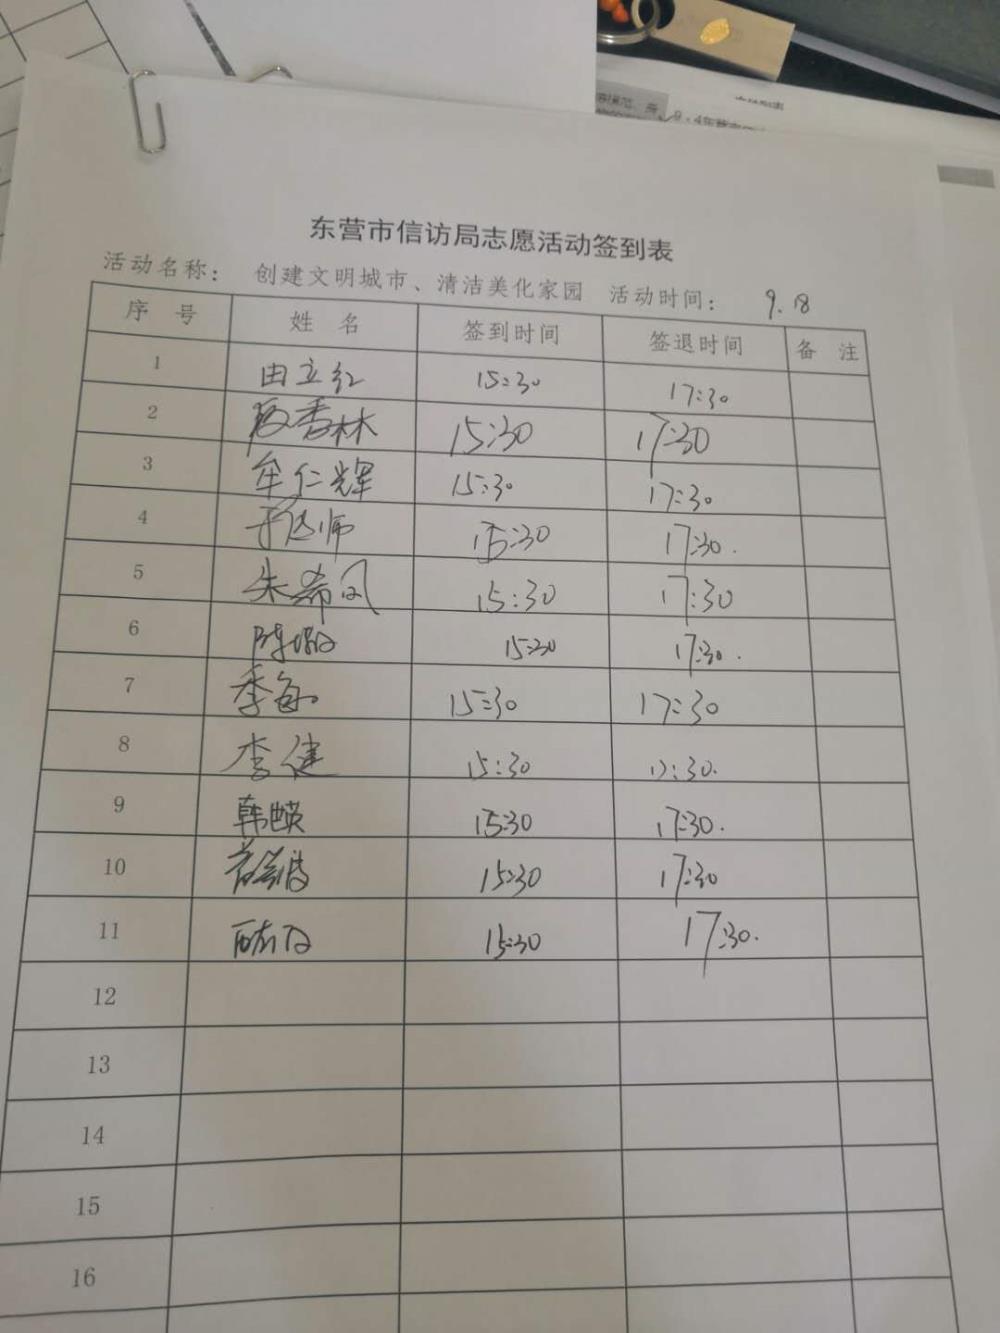 东营市信访局志愿活动签到表
活动名称： 创建文明城市、清洁美化家园 活动时间： 9.18
序 号 姓 名 签到时间 签退时间 备 注
1 由立红 15:30 17:30
2 香林 15:30 17:30
3 牟仁辉 15:30 17:30
4 15:30 17:30.
5 朱希凤 15:30 17:30
6 陈 15:30 17:30.
7 季 15:30 17:30
8 李健 15:30 17:30.
9 韩 15:30 17:30.
10 15:30 17:30
11 15:30 17:30.
12
13
14
15
16